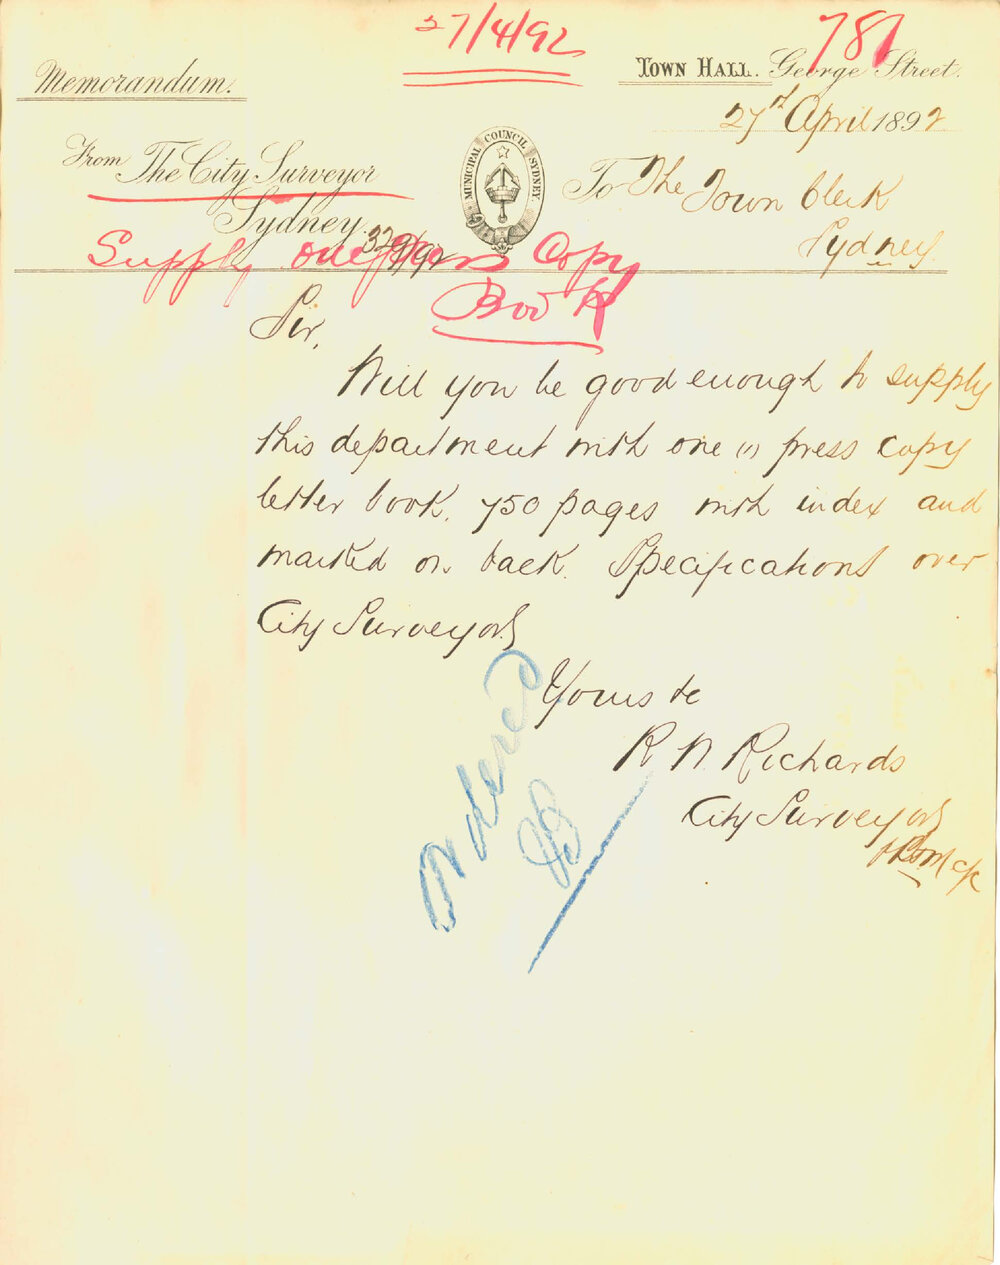 27/4/92
781
Memorandum.
TOWN HALL. George Street.
27th April 1892
From The City Surveyor
Sydney.
MUNICIPAL COUNCIL SYDNEY.
To The Town Clerk
Sydney.
329/92
Supply one press Copy
Book
Sir,
Will you be good enough to supply
this department with one (1) press copy
letter book, 750 pages with index and
marked on back. Specifications over
City Surveyors
Yours &c
R W Richards
City Surveyor
Ordered